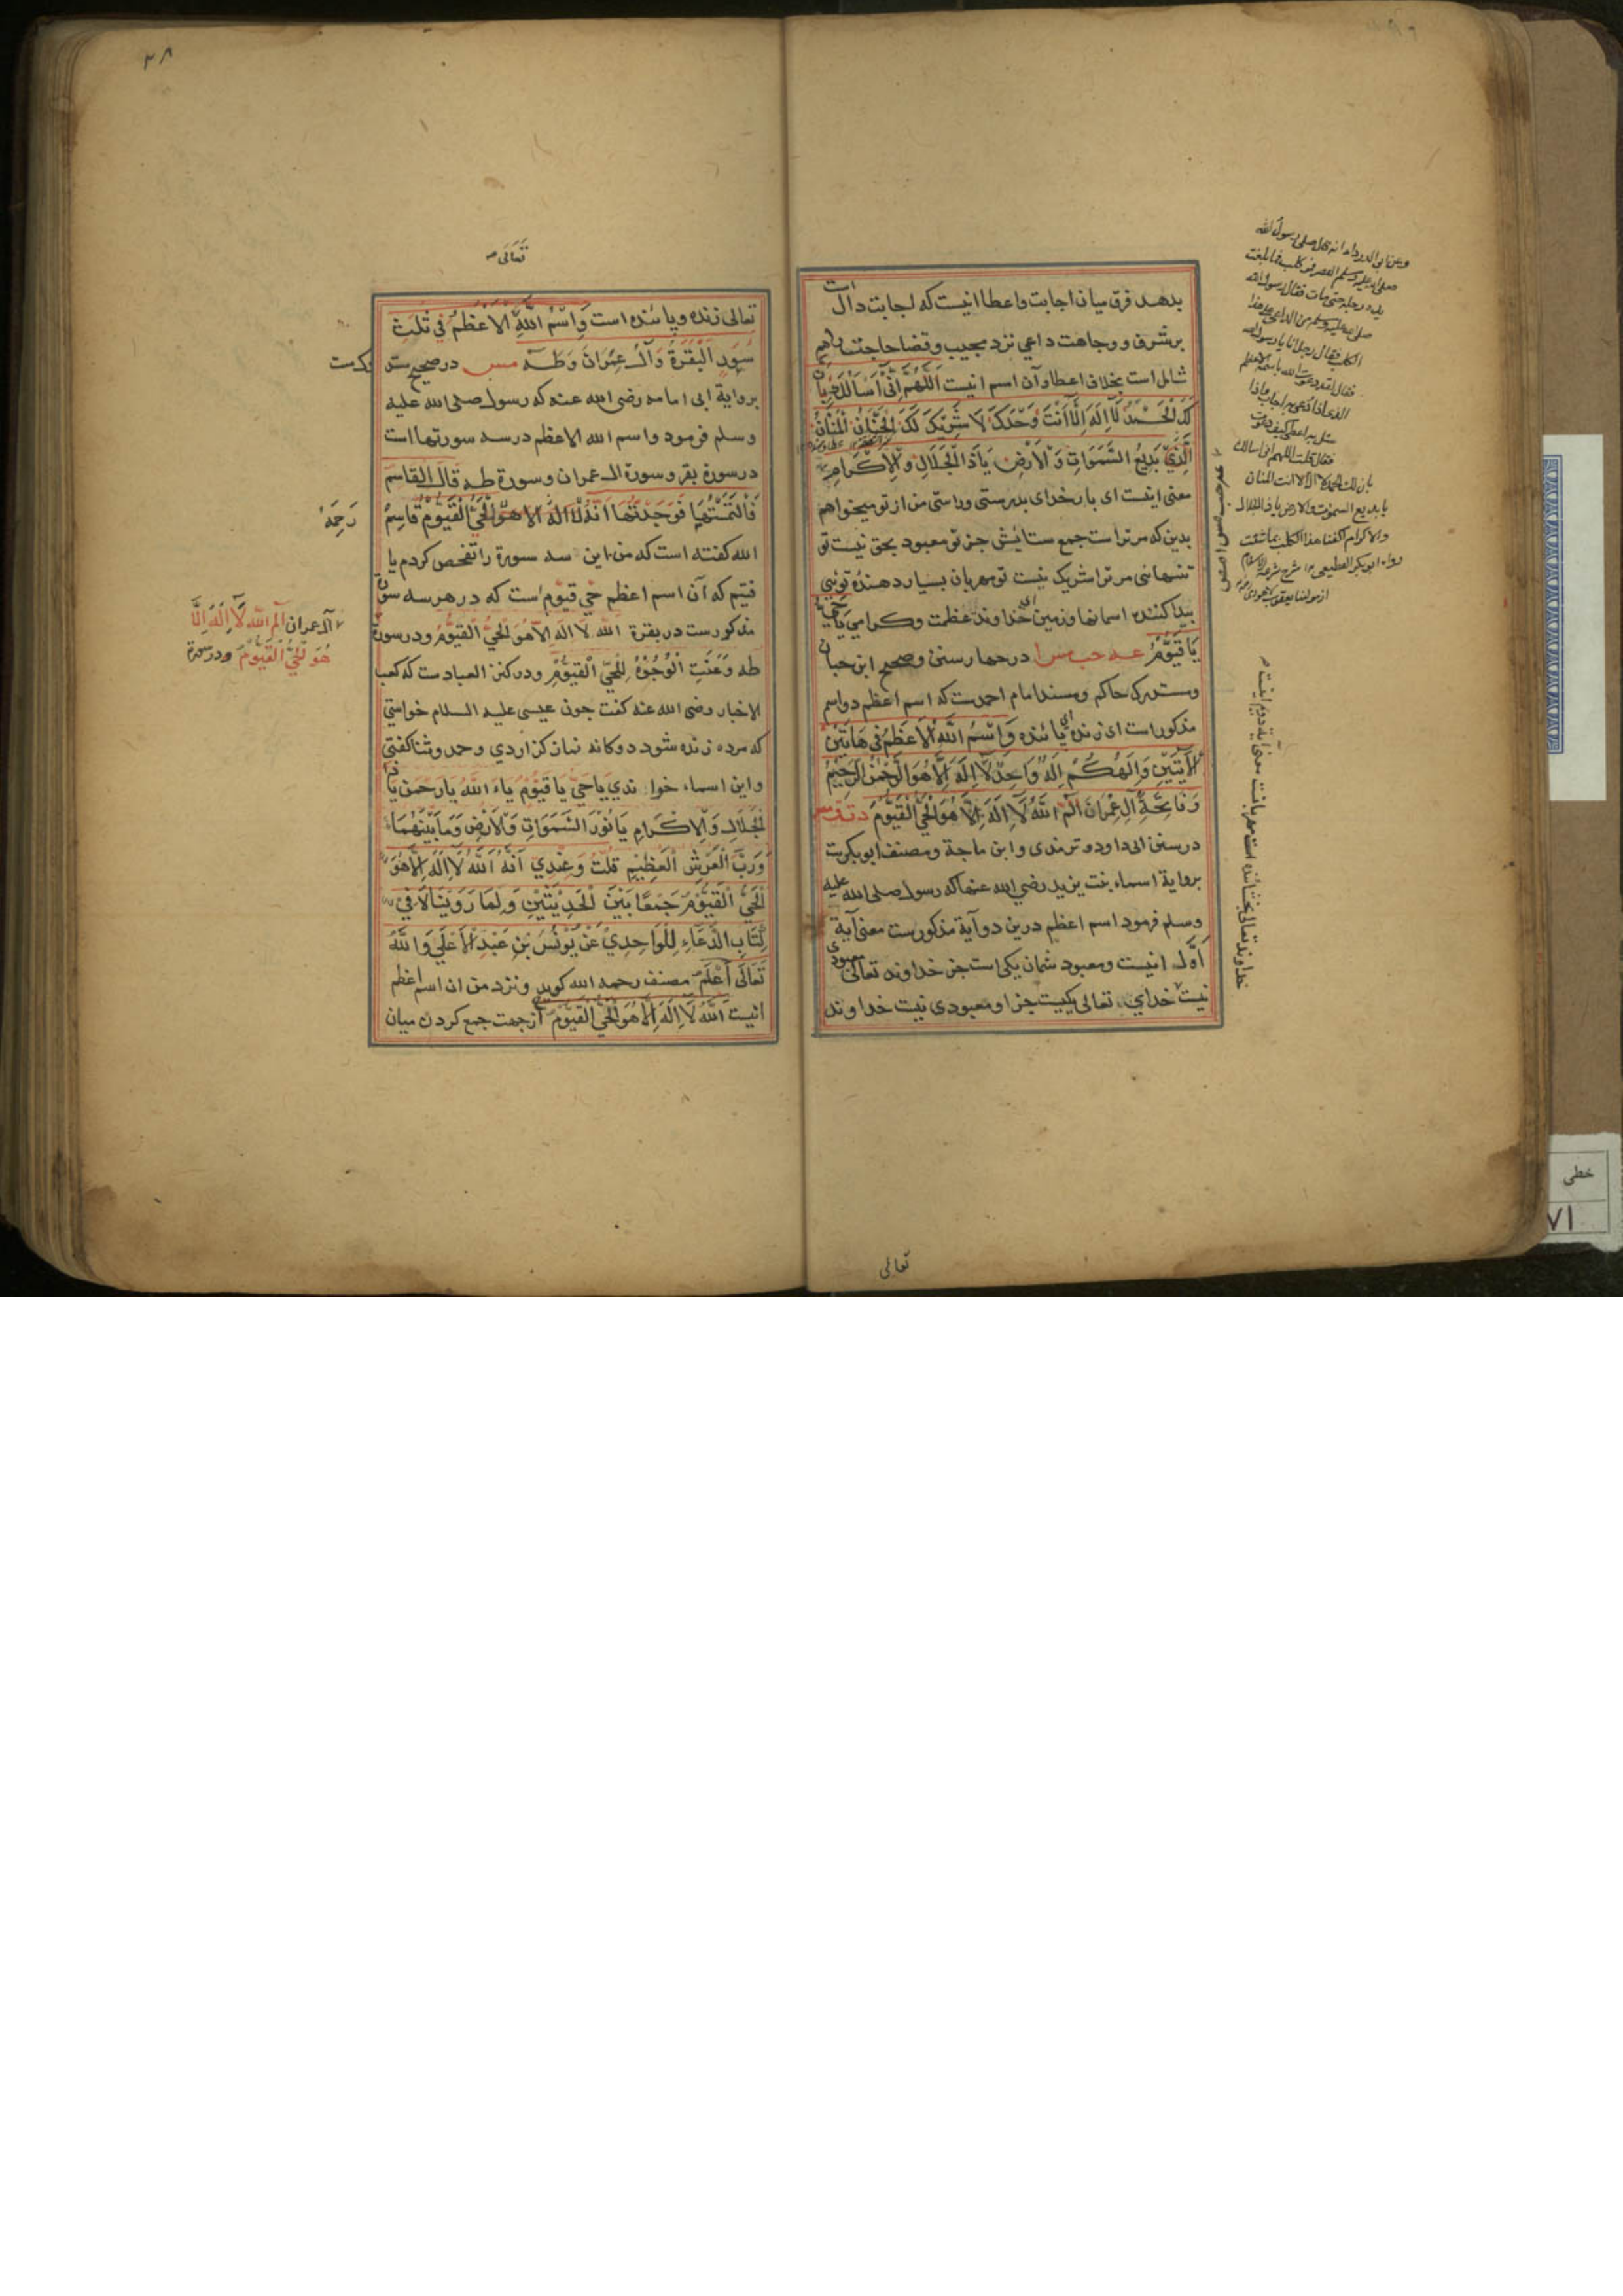 بدهد فرق میان اجابت واعطا اینست که اجابت دال است
برشرف ووجاهت داعي نزد مجیب وقضا حاجت راهم
شامل است بخلاف اعطا وآن اسم اینست اَللّٰهُمَّ اِنِّيْ اَسْاَلُكَ بِاَنَّ
لَكَ الْحَمْدُ لَا اِلٰهَ اِلَّا اَنْتَ وَحْدَكَ لَا شَرِيْكَ لَكَ الْحَنَّانُ الْمَنَّانُ
الَّذِيْ بَدِيْعُ السَّمٰوَاتِ وَالْاَرْضِ يَاذَا الْجَلَالِ وَالْاِكْرَامِ
معنی اینست ای بار خدای بدرستی وراستی من از تو میخواهم
بدین که مر تراست جمع ستایش جز تو معبود بحق نیست تو
تنهائی مر ترا شریک نیست تو مهربان بسیار دهندۀ توئی
پیدا کننده اسمانها وزمین ای خداوند عظمت وکرامي يَاحَيُّ
يَا قَيُّوْمُ عه حب مس ا درچهار سنن وصحیح ابن حبان
ومستدرک حاکم ومسند امام احمدست که اسم اعظم دواسم
مذکور است ای زنده ای پائنده وَاسْمُ اللّٰهِ الْاَعْظَمُ فِيْ هَاتَيْنِ
الْاٰيَتَيْنِ وَاِلٰهُكُمْ اِلٰهٌ وَاحِدٌ لَا اِلٰهَ اِلَّا هُوَ الرَّحْمٰنُ الرَّحِيْمُ
وَفَاتِحَةُ اٰلِ عِمْرَانَ الٓمّٓ اللّٰهُ لَا اِلٰهَ اِلَّا هُوَ الْحَيُّ الْقَيُّوْمُ د ت ق مص
درسنن ابی داود وترمذی وابن ماجة ومصنف ابوبکرست
بروایة اسماء بنت یزید رضي الله عنها که رسول صلی الله علیه
وسلم فرمود اسم اعظم درین دوآیة مذکورست معنی آیة
اوّل اینست ومعبود شمان یکی است جز خداوند تعالی معبودی
نیست خدای تعالی یکیست جز او معبودی نیست خداوند
تعالی
وعن ابي الدرداء انه كان صلى رسول الله
صلى الله عليه وسلم العصر فمر كلب فما بلغت
يده رجله حتى مات فقال رسول الله
صلى الله عليه وسلم من الداعي على هذا
الكلب فقال رجل انا يا رسول الله
فقال لقد دعوت الله باسمه الاعظم
الذي اذا دعي به اجاب واذا
سئل به اعطى كيف دعوت
فقال قلت اللهم اني اسالك
بان لك الحمد لا اله الا انت المنان
يا بديع السموت والارض يا ذا الجلال
والاكرام اكفنا هذا الكلب بما شئت
رواه ابوبكر القطيعي شرح شرعة الاسلام
از مولنا یعقوب
خداوند تعالی بخشائنده است مهربانست معنی آیة دوم اینست
٣٨
تَعَالٰى
تعالی زنده وپائنده است وَاسْمُ اللّٰهِ الْاَعْظَمُ فِيْ ثَلٰثِ
سُوَرٍ الْبَقَرَةُ وَاٰلُ عِمْرَانَ وَطٰهٰ مس درصحیح مستد
رکست
بروایة ابی امامه رضی الله عنه که رسول صلی الله علیه
وسلم فرمود واسم الله الاعظم درسه سورتها است
درسورة بقر وسورة ال عمران وسورة طه قَالَ الْقَاسِمُ
فَالْتَمَسْتُهَا فَوَجَدْتُهَا اَنَّهُ لَا اِلٰهَ اِلَّا هُوَ الْحَيُّ الْقَيُّوْمُ قَاسِمْ
رَحِمَهُ
الله کفته است که من این سه سورة را تفحص کردم یا
فتیم که آن اسم اعظم حَي قَيّوم است که در هرسه سورة
مذکورست در بقرة اَللّٰهُ لَا اِلٰهَ اِلَّا هُوَ الْحَيُّ الْقَيُّوْمُ ودرسورة
آل عمران الٓمّٓ اللّٰهُ لَا اِلٰهَ اِلَّا
هُوَ الْحَيُّ الْقَيُّوْمُ ودرسورة
طه وَعَنَتِ الْوُجُوْهُ لِلْحَيِّ الْقَيُّوْمِ ودر کنز العبادست که کعب
الاخبار رضی الله عنه کفت چون عیسی علیه السلام خواستي
که مرده زنده شود دوکانه نماز کزاردي وحمد وثنا کفتي
واین اسماء خواندي يَاحَيُّ يَا قَيُّوْمُ يَا اَللّٰهُ يَا رَحْمٰنُ يَا ذَا
الْجَلَالِ وَالْاِكْرَامِ يَا نُوْرَ السَّمٰوَاتِ وَالْاَرْضِ وَمَا بَيْنَهُمَا
وَرَبَّ الْعَرْشِ الْعَظِيْمِ قُلْتُ وَعِنْدِيْ اَنَّهُ اَللّٰهُ لَا اِلٰهَ اِلَّا هُوَ
الْحَيُّ الْقَيُّوْمُ جَمْعًا بَيْنَ الْحَدِيْثَيْنِ وَلِمَا رَوَيْنَا فِيْ
كِتَابِ الدُّعَاءِ لِلْوَاحِدِيِّ عَنْ يُوْنُسَ بْنِ عَبْدِ الْاَعْلٰى وَاللّٰهُ
تَعَالٰى اَعْلَمُ مصنف رحمه الله کوید ونزد من ان اسم اعظم
اینست اَللّٰهُ لَا اِلٰهَ اِلَّا هُوَ الْحَيُّ الْقَيُّوْمُ از جهت جمع کردن میان
خطی
٧١